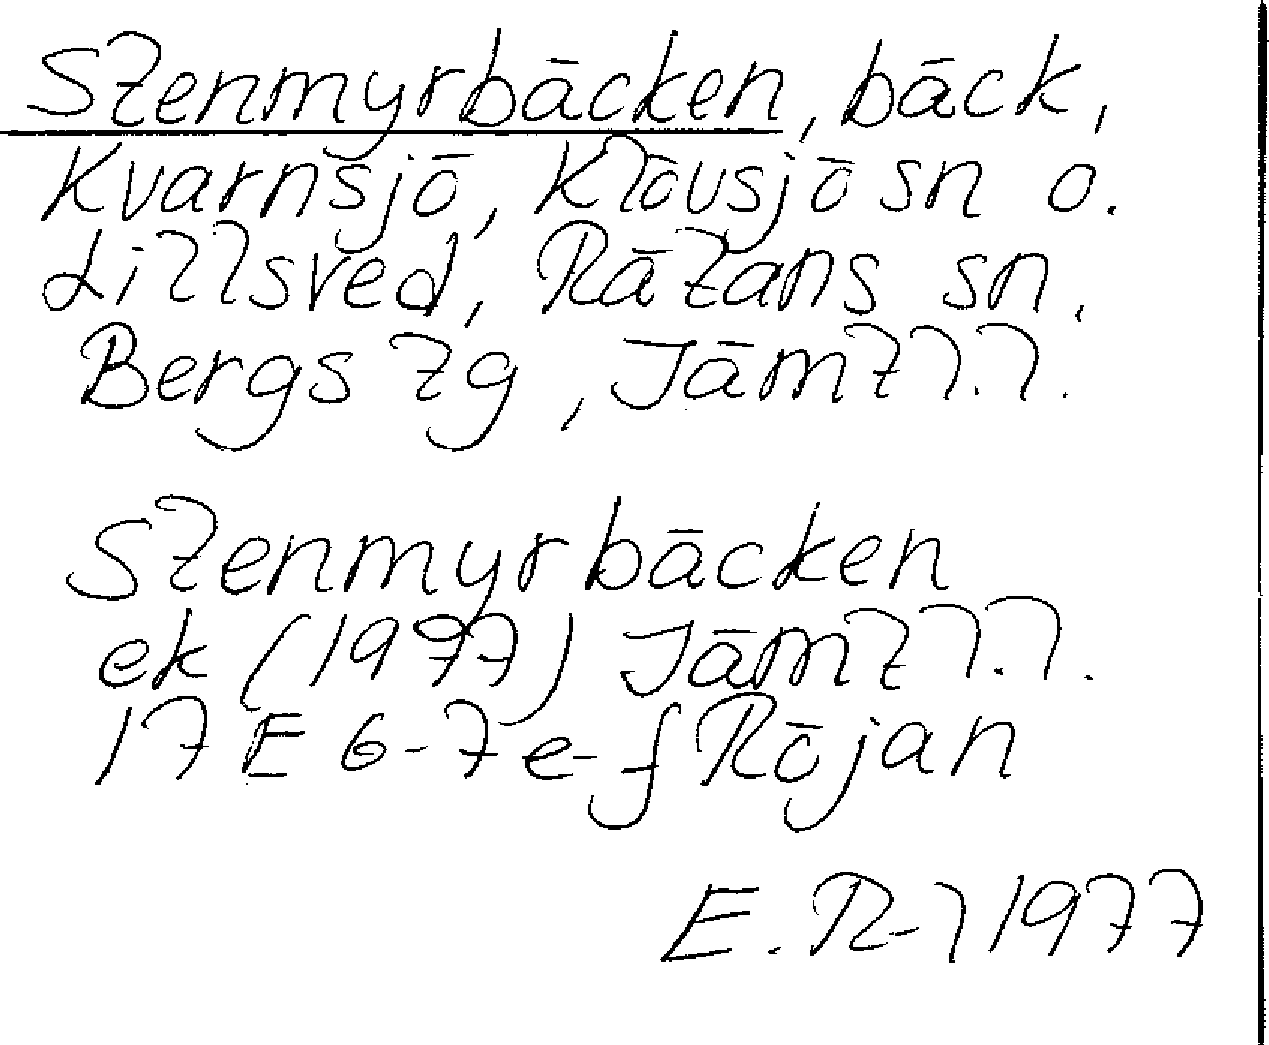 Stenmyrbäcken, bäck,
Kvarnsjö, Klövsjö sn o.
Lillsved, Rätans sn,
Bergs tg, Jämtl.l.
Stenmyrbäcken
ek (1977) Jämtl.l.
17 E 6-7e-f Röjan
E. R-l 1977